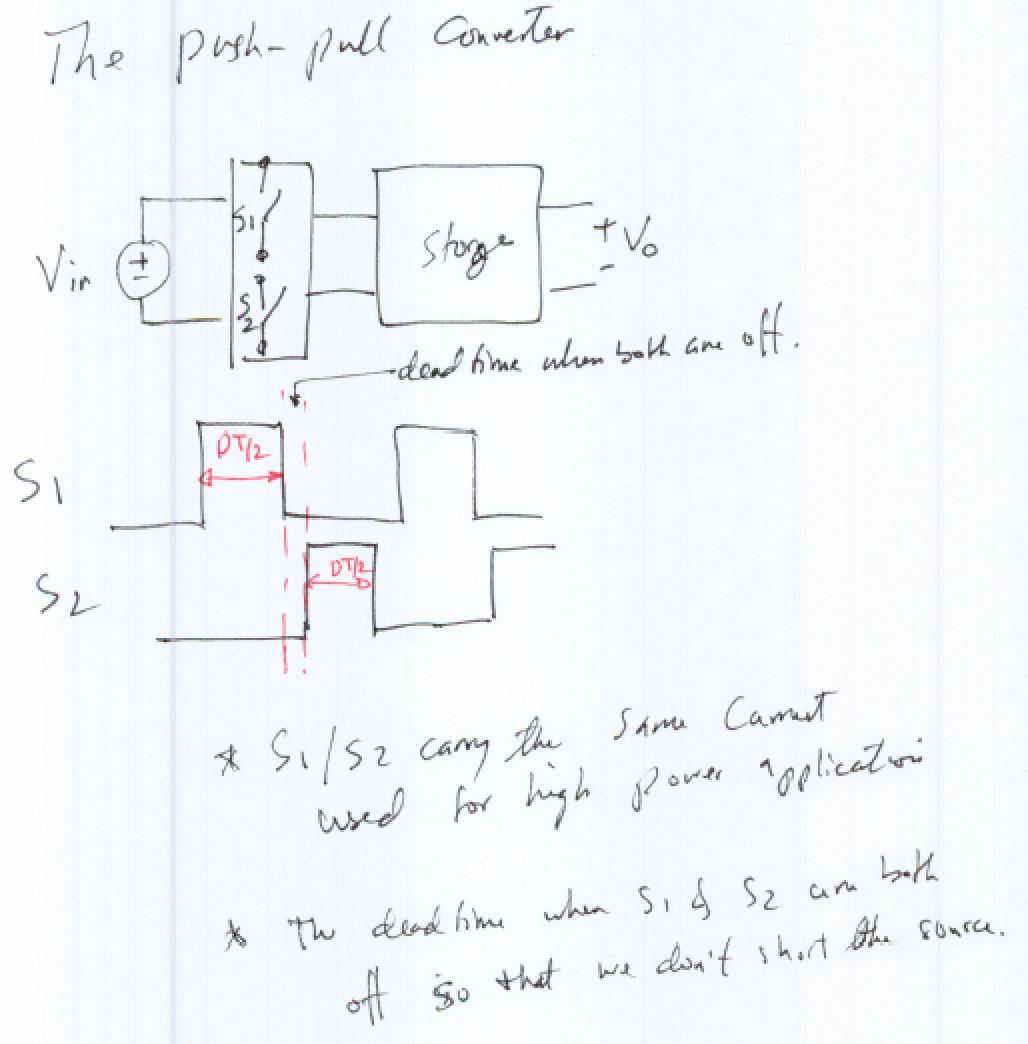 The push-pull Converter
S1
Vin
+
-
Storge
+
Vo
-
S2
dead time when both are off.
DT/2
S1
DT/2
S2
* S1/S2 carry the Same Current
used for high power application
* The dead time when S1 & S2 are both
off so that we don't short the source.